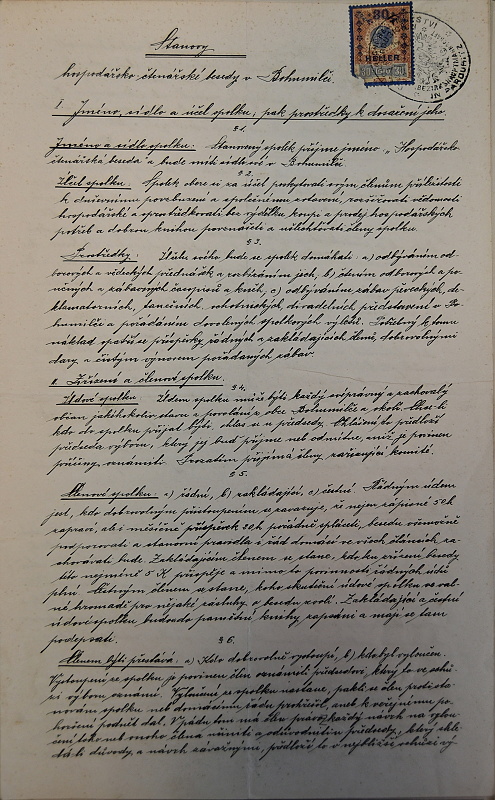 Stanovy
hospodářsko čtenářské besedy v Bohumilči.
I. Jméno, sídlo a účel spolku; pak prostředky k dosažení jeho.
§ 1.
Jméno a sídlo spolku. Stanovený spolek přijme jméno „Hospodářsko
čtenářská beseda" a bude míti sídlo své v Bohumilči.
§ 2.
Účel spolku. Spolek obere si za účel poskytovati svým členům příležitost
k duševnímu povzbuzení a společenému zotavení, rozšiřovati vědomosti
hospodářské a zprostředkovati bez výdělku koupi a prodej hospodářských
potřeb a dobrou knihou povznášeti a ušlechťovati členy spolku.
§ 3.
Prostředky. Účelu svého bude se spolek domáhati: a) odbýváním od-
borových a vědeckých přednášek a rozbíráním jich, b) čtením odborových a po-
učných a zábavových časopisů a knih, c) odbýváním zábav pěveckých, de-
klamatorních, tanečních, ochotnických divadelních představení v Bo-
humilči a pořádáním dovolených spolkových výletů. Potřebný k tomu
náklad opatří se příspěvky řádných a zakládajících členů, dobrovolnými
dary a čistým výnosem pořádaných zábav.
II. Zřízení a členové spolku.
§ 4.
Údové spolku. Údem spolku může býti každý svéprávný a zachovalý
občan jakéhokoliv stavu a povolání z obce Bohumilče a okolí. Chce-li
kdo do spolku přijat býti, ohlas se u předsedy. Ohlášení to předloží
předseda výboru, který jej buď přijme neb odmítne, aniž je povinen
příčiny oznámiti. Prozatím přijímá členy zařizující komité.
§ 5.
Členové spolku: a) řádní, b) zakládající, c) čestní. Řádným údem
jest, kdo dobrovolným přistoupením se zavazuje, že nejen zápisné 50 h
zapraví, ale i měsíčně příspěvek 20 h pořádně spláceti, besedu všemožně
podporovati a stanovní pravidla i řád domácí ve všech článcích za-
chovávati bude. Zakládajícím členem se stane, kdo ku zřízení besedy
této nejméně 5 K přispěje a mimo to povinnosti řádných údů
plní. Čestným členem se stane, koho skuteční údové spolku ve val-
né hromadě pro nějaké zásluhy o besedu zvolí. Zakládající a čestní
údové spolku budou do pamětní knihy zapsáni a mají se tam
podepsati.
§ 6.
Členem býti přestává: a) Kdo dobrovolně vystoupí, b) kdo byl vyloučen.
Vystoupení ze spolku je povinen člen oznámiti předsedovi, který to ve schů-
zi výboru oznámí. Vyloučení ze spolku nastane, pakli se člen proti sta-
novám spolku neb domácímu řádu prohřešil, aneb k veřejnému po-
horšení podnět dal. V pádu tom má člen právo každý návrh na vylou-
čení toho neb onoho člena náležitě odůvodniti u předsedy, který shle-
dá-li důvody, a návrh závažným, předloží to v nejbližší schůzi vý-
80
HELLER